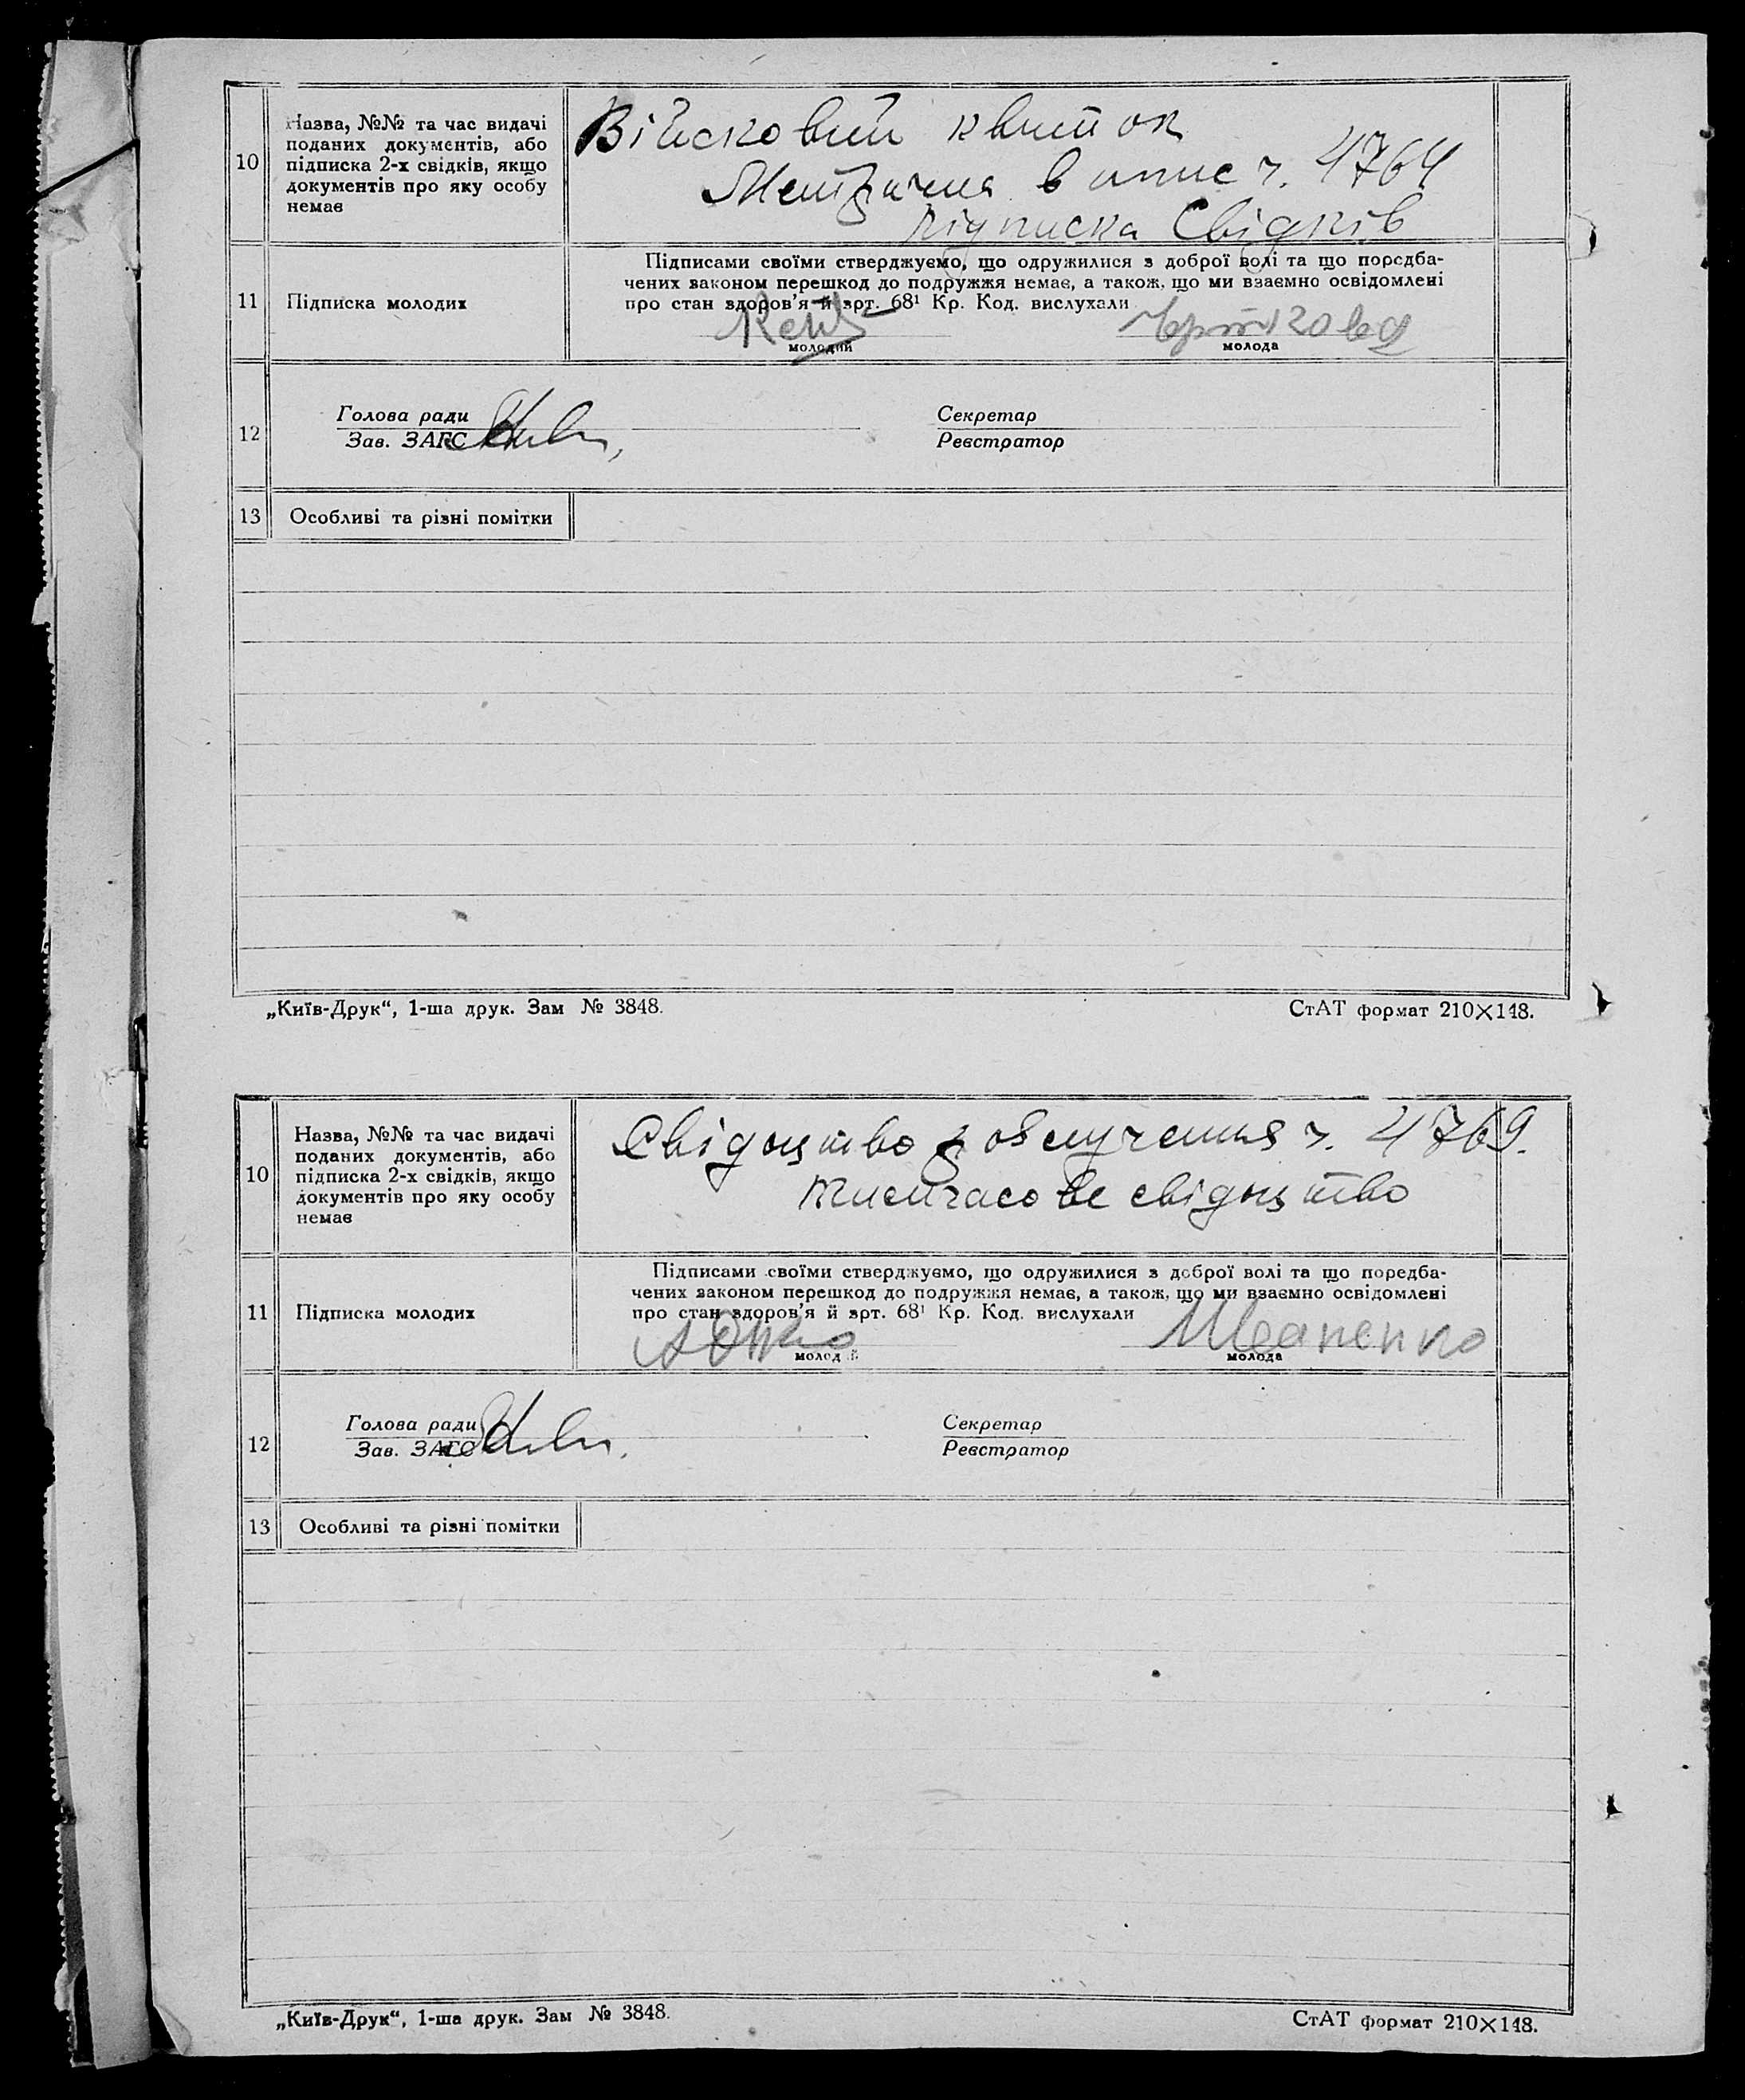 10
Назва, №№ та час видачі
поданих документів, або
підписка 2-х свідків, якщо
документів про яку особу
немає
Військовий квиток
Метрична випис ч. 4764
підписка свідків
11
Підписка молодих
Підписами своїми стверджуємо, що одружилися з доброї волі та що передба-
чених законом перешкод до подружжя немає, а також, що ми взаємно освідомлені
про стан здоров'я й арт. 68¹ Кр. Код. вислухали
молодий
молода
12
Голова ради
Зав. ЗАГС
Секретар
Реєстратор
13
Особливі та різні помітки
„Київ-Друк“, 1-ша друк. Зам № 3848.
СтАТ формат 210×148.
10
Назва, №№ та час видачі
поданих документів, або
підписка 2-х свідків, якщо
документів про яку особу
немає
Свідоцтво ч. 4769.
тимчасове свідоцтво
11
Підписка молодих
Підписами своїми стверджуємо, що одружилися з доброї волі та що передба-
чених законом перешкод до подружжя немає, а також, що ми взаємно освідомлені
про стан здоров'я й арт. 68¹ Кр. Код. вислухали
молодий
молода
12
Голова ради
Зав. ЗАГС
Секретар
Реєстратор
13
Особливі та різні помітки
„Київ-Друк“, 1-ша друк. Зам № 3848.
СтАТ формат 210×148.